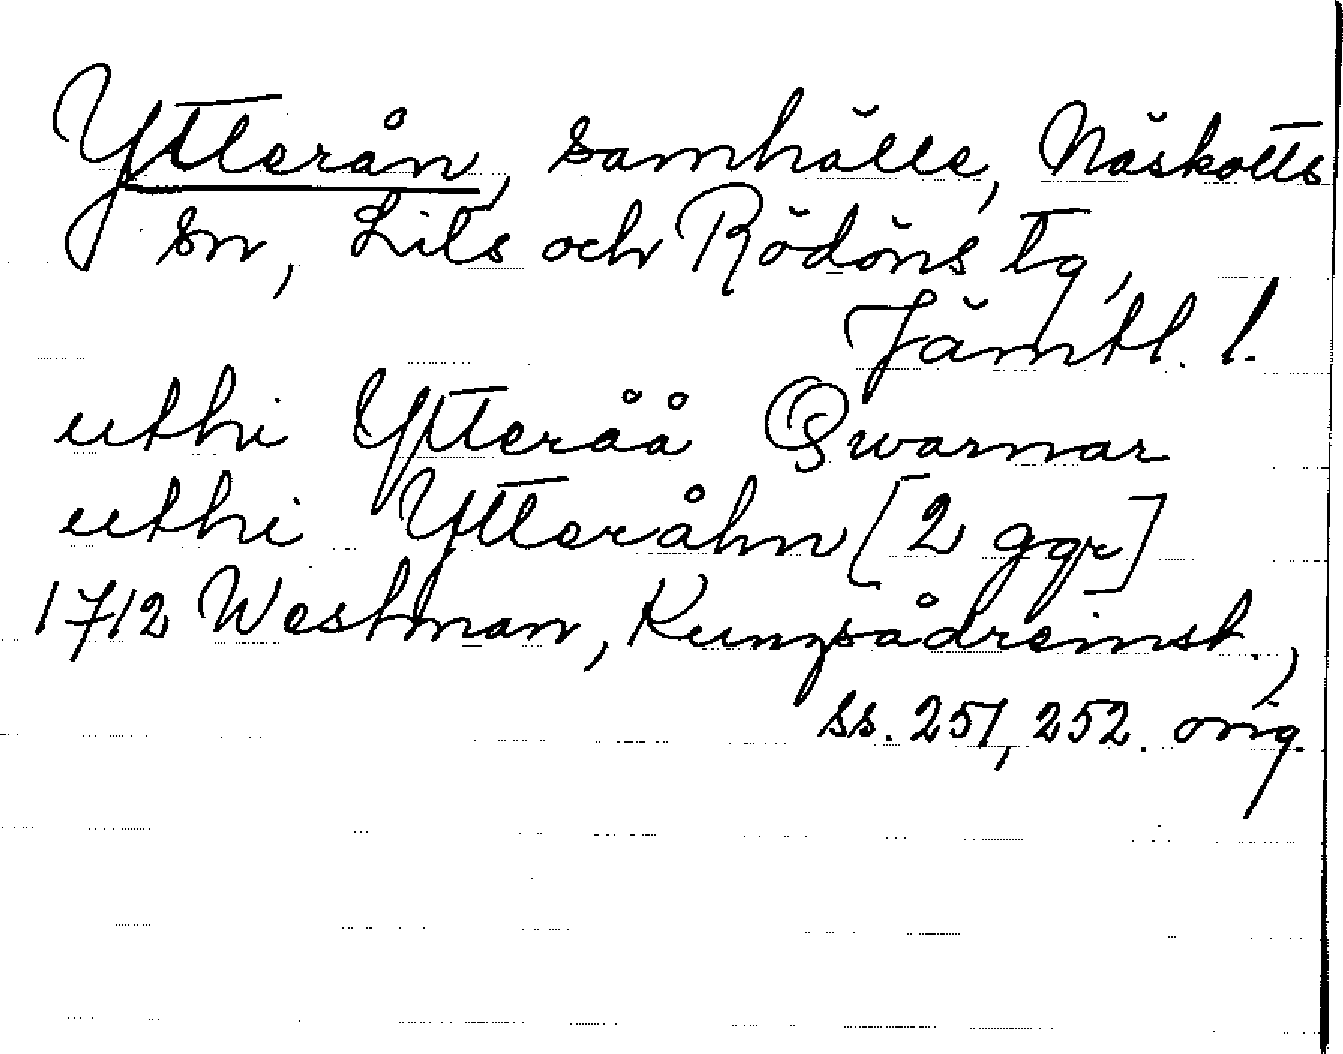 Ytterån, samhälle, Näskotts
sn, Lits och Rödöns tg,
Jämtl. l.
uthi Ytteråå Qwarnar
uthi Ytteråhn [2 ggr]
1712 Westman, Kungsådreinst.,
ss. 251, 252. orig.